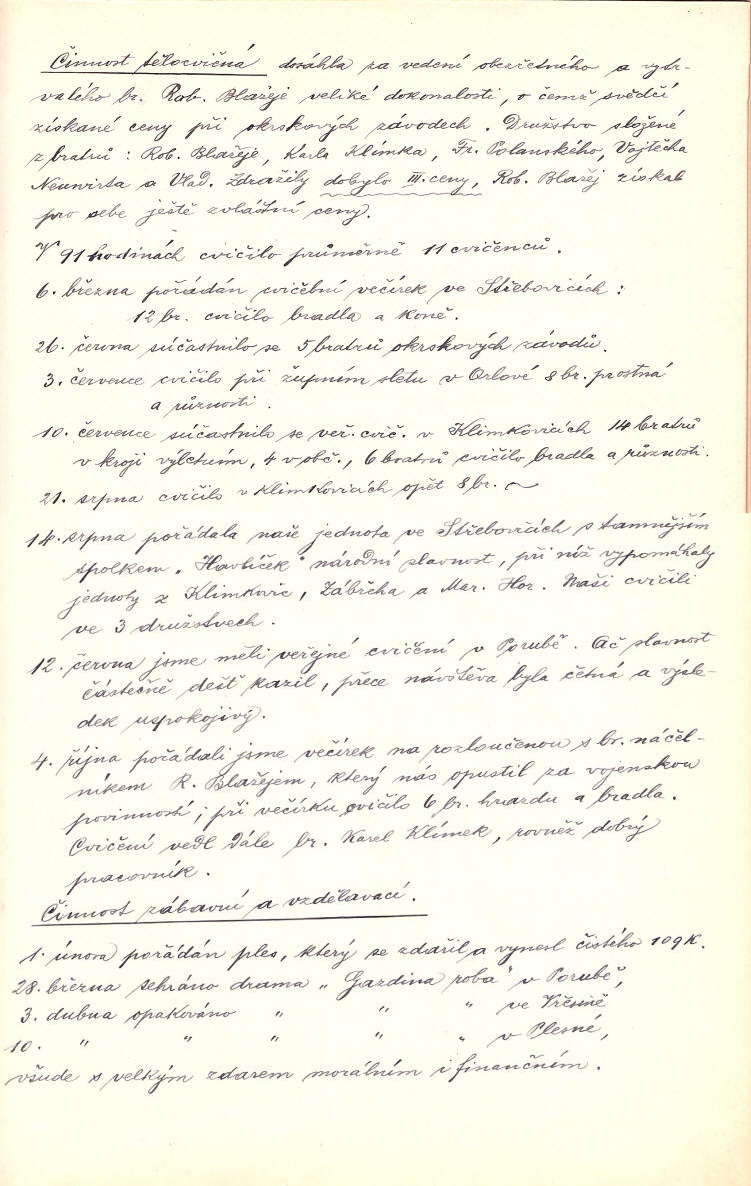 Činnost tělocvičná dosáhla za vedení obezřetného a vytr-
valého br. Rob. Blažeje veliké dokonalosti, o čemž svědčí
získané ceny při okrskových závodech. Družstvo složené
z bratrů: Rob. Blažeje, Karla Klímka, Fr. Polanského, Vojtěcha
Neuwirta a Vlad. Zdražily dobylo III. ceny, Rob. Blažej získal
pro sebe ještě zvláštní ceny.
V 91 hodinách cvičilo průměrně 11 cvičenců.
6. března pořádán cvičební večírek ve Střebovicích:
12 br. cvičilo bradla a koně.
26. června súčastnilo se 5 bratrů okrskových závodů.
3. července cvičilo při župním sletu v Orlové 8 br. prostná
a různosti.
10. července súčastnilo se veř. cvič. v Klimkovicích 14 bratrů
v kroji výletním, 4 v obč., 6 bratrů cvičilo bradla a různosti.
21. srpna cvičilo v Klimkovicích opět 8 br. ~
14. srpna pořádala naše jednota ve Střebovicích s tamnějším
spolkem „Havlíček" národní slavnost, při níž vypomáhaly
jednoty z Klimkovic, Zábřeha a Mar. Hor. Naši cvičili
ve 3 družstvech.
12. června jsme měli veřejné cvičení v Porubě. Ač slavnost
částečně déšť kazil, přece návštěva byla četná a výsle-
dek uspokojivý.
4. října pořádali jsme večírek na rozloučenou s br. náčel-
níkem R. Blažejem, který nás opustil za vojenskou
povinností; při večírku cvičilo 6 br. hrazdu a bradla.
Cvičení vedl dále br. Karel Klímek, rovněž dobrý
pracovník.
Činnost zábavní a vzdělavací.
1. února pořádán ples, který se zdařil a vynesl čistého 109 K.
28. března sehráno drama „Gazdina roba" v Porubě,
3. dubna opakováno " " " ve Vřesině
10. " " " " " v Plesné,
všude s velkým zdarem morálním i finančním.